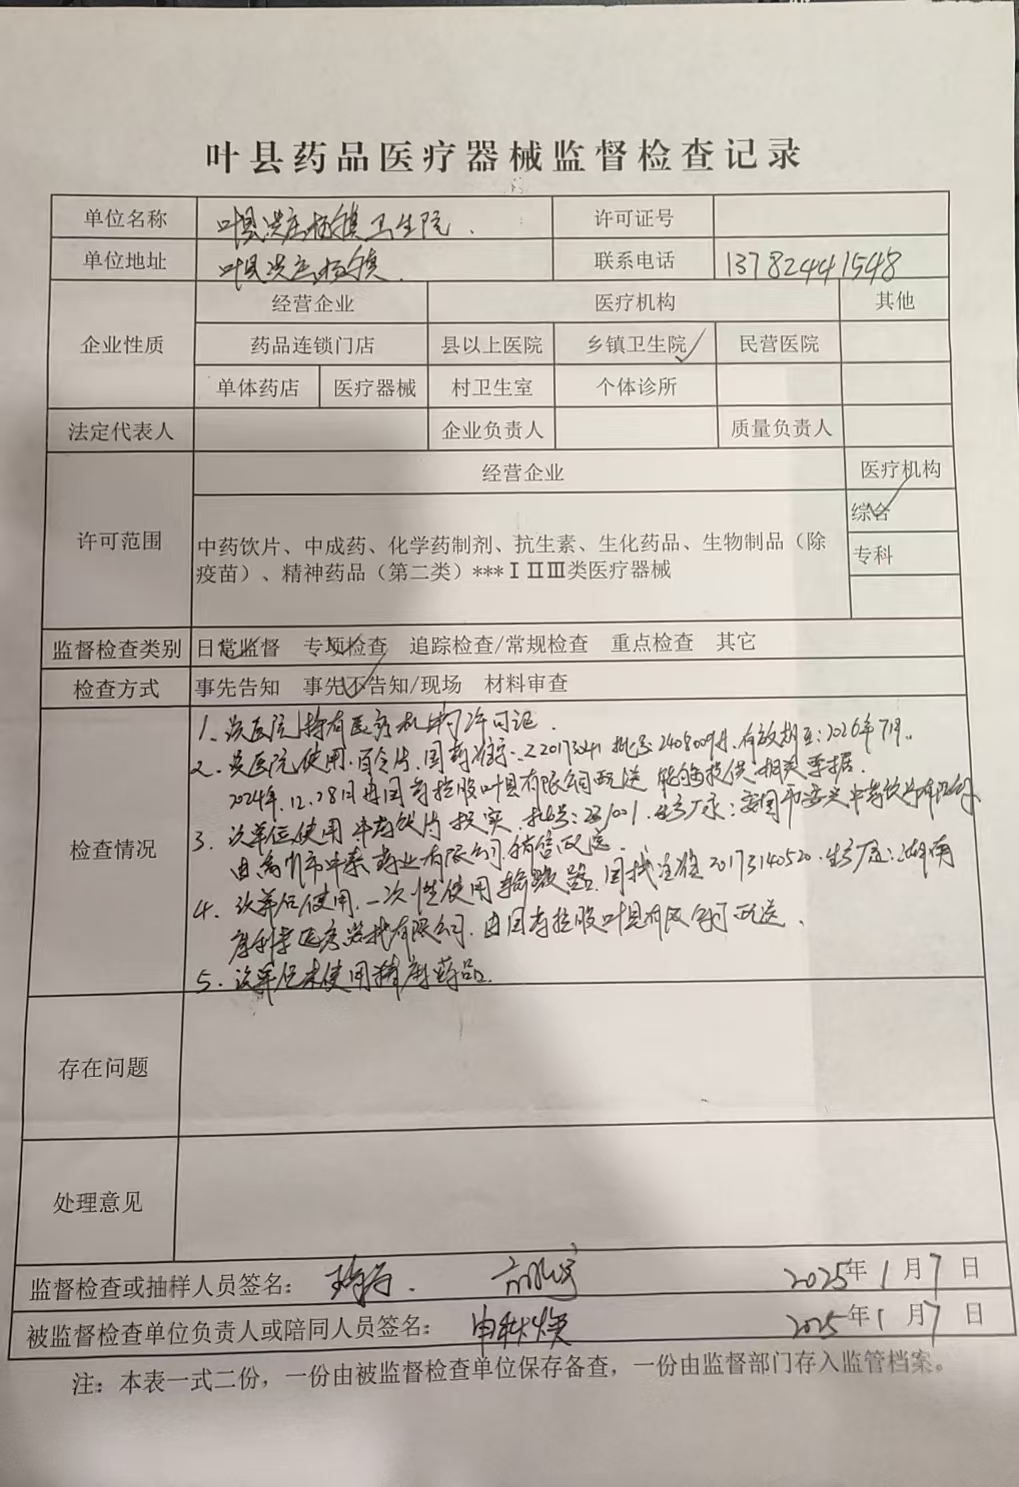 叶县药品医疗器械监督检查记录
单位名称 叶县洪庄杨镇卫生院. 许可证号
单位地址 叶县洪庄杨镇. 联系电话 13782441548
企业性质 经营企业 医疗机构 其他
药品连锁门店 县以上医院 乡镇卫生院✓ 民营医院
单体药店 医疗器械 村卫生室 个体诊所
法定代表人 企业负责人 质量负责人
许可范围 经营企业 医疗机构
综合✓
中药饮片、中成药、化学药制剂、抗生素、生化药品、生物制品（除
疫苗）、精神药品（第二类）***ⅠⅡⅢ类医疗器械
专科
监督检查类别 日常监督 专项检查 追踪检查/常规检查 重点检查 其它
检查方式 事先告知 事先不告知/现场 材料审查
检查情况
1. 该医院持有医疗机构许可证.
2. 该医院使用百合片.国药准字: 批号: 有效期至:2026年7月.
2024年.12.28日由国药控股叶县有限公司配送 能够提供相关票据.
3. 该单位使用中药饮片枳实.批号:231001.生产厂家:安国市 中药饮片有限公司
由 州市 药业有限公司销售配送.
4. 该单位使用.一次性使用输液器.国械注准20173140520.生产厂家:湖南
医疗器械有限公司.由国药控股叶县有限公司配送.
5. 该单位未使用精麻药品.
存在问题
处理意见
监督检查或抽样人员签名： 2025年1月7日
被监督检查单位负责人或陪同人员签名： 申秋焕 2025年1月7日
注：本表一式二份，一份由被监督检查单位保存备查，一份由监督部门存入监管档案。